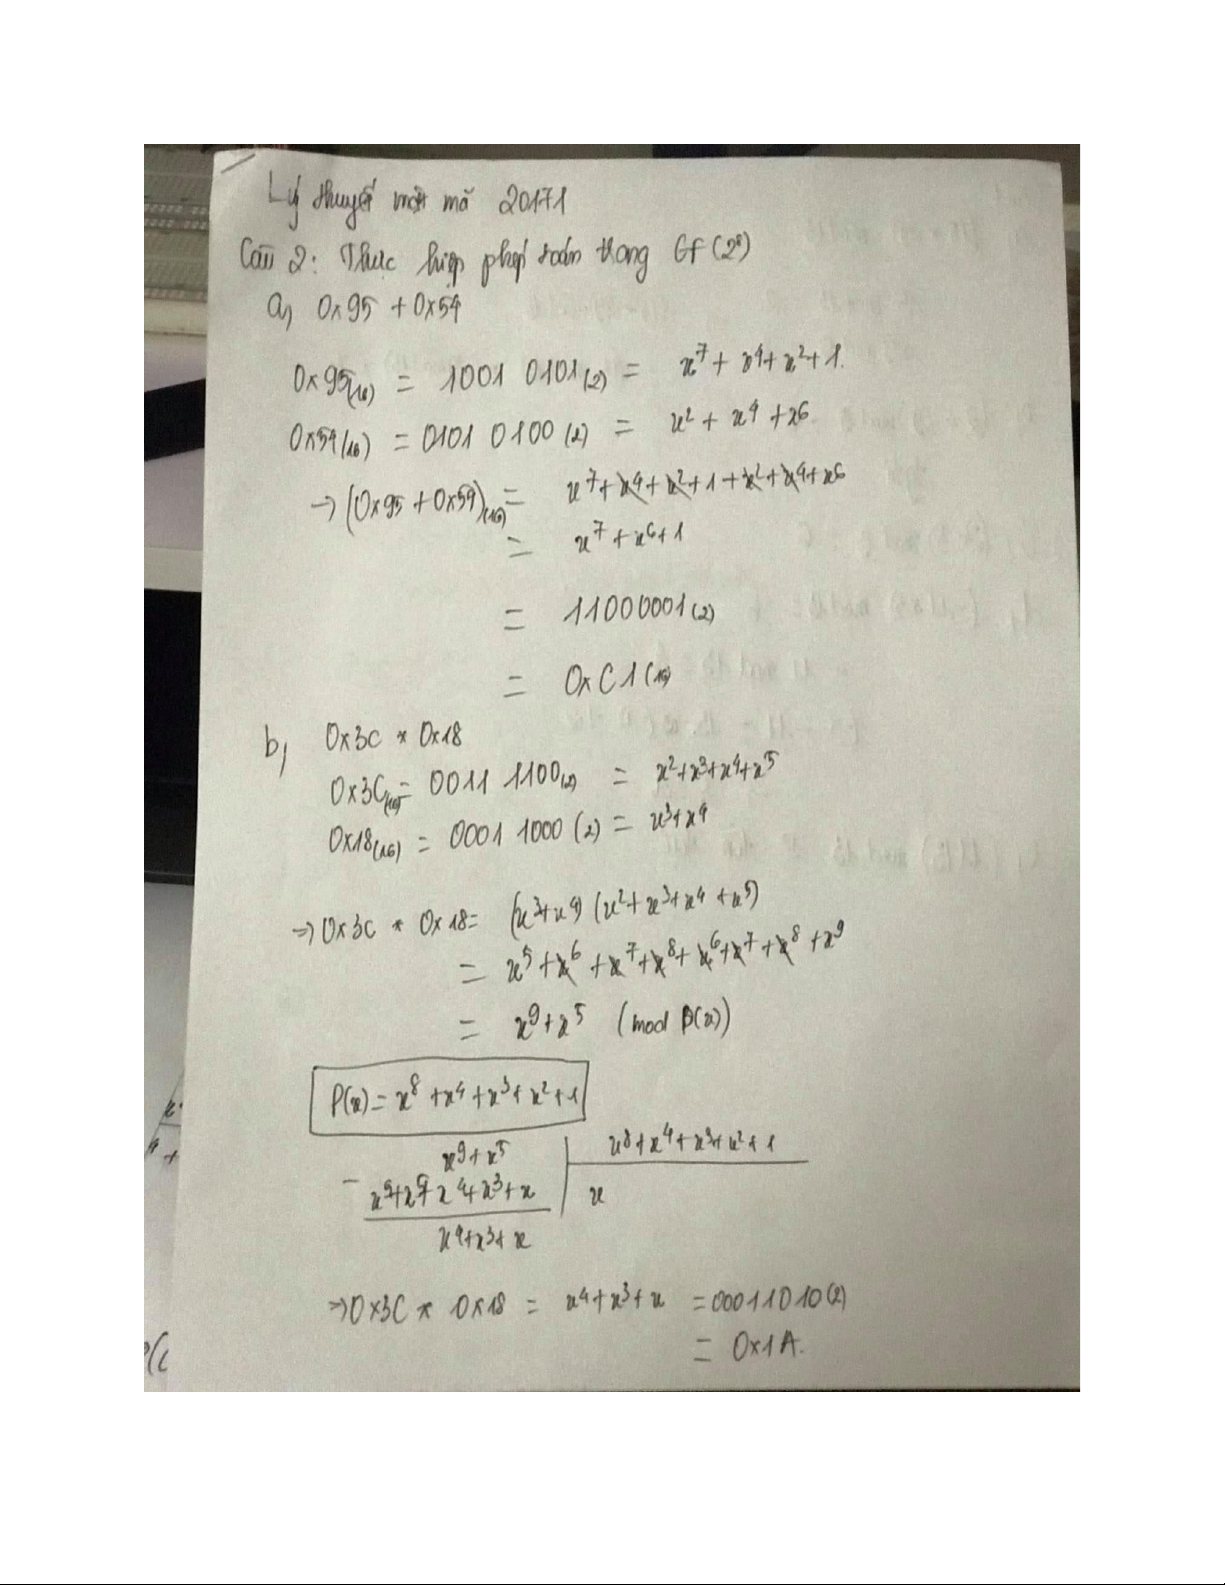 Lý thuyết mật mã 20171
Câu 2: Thực hiện phép toán trong GF(2⁸)
a) 0x95 + 0x54
0x95(16) = 1001 0101(2) = x⁷ + x⁴ + x² + 1.
0x54(16) = 0101 0100(2) = x² + x⁴ + x⁶
→ (0x95 + 0x54)(16) = x⁷ + x⁴ + x² + 1 + x² + x⁴ + x⁶
= x⁷ + x⁶ + 1
= 11000001(2)
= 0xC1(16)
b) 0x3C * 0x18
0x3C(16) = 0011 1100(2) = x² + x³ + x⁴ + x⁵
0x18(16) = 0001 1000(2) = x³ + x⁴
⇒ 0x3C * 0x18 = (x³ + x⁴)(x² + x³ + x⁴ + x⁵)
= x⁵ + x⁶ + x⁷ + x⁸ + x⁶ + x⁷ + x⁸ + x⁹
= x⁹ + x⁵ (mod P(x))
P(x) = x⁸ + x⁴ + x³ + x² + 1
x⁹ + x⁵ | x⁸ + x⁴ + x³ + x² + 1
− x⁹ + x⁵ + x⁴ + x³ + x | x
x⁴ + x³ + x
⇒ 0x3C * 0x18 = x⁴ + x³ + x = 00011010(2)
= 0x1A.
P(